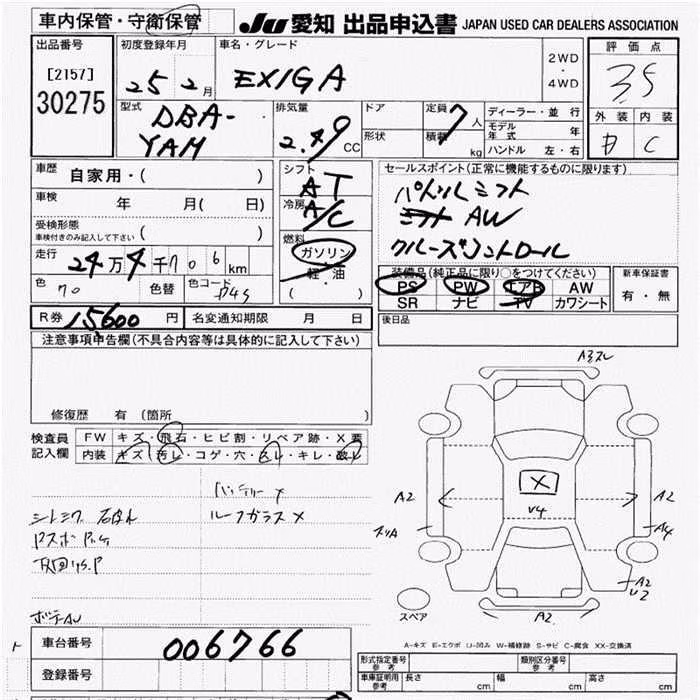 車内保管・守衛保管
JU 愛知 出品申込書 JAPAN USED CAR DEALERS ASSOCIATION
出品番号
[2157]
30275
初度登録年月
25年2月
車名・グレード
EXIGA
2WD
・
4WD
評価点
3.5
外装 内装
C
型式
DBA-
YAM
排気量
2.49 CC
ドア
形状
定員 7人
積載 kg
ディーラー・並行
モデル年式 年
ハンドル 左・右
車歴
自家用・( )
車検
年 月( 日)
受検形態
車検付きのみ記入して下さい ( )
走行 24万4千706km
色 色替 色コード
R券 15,600円 名変通知期限 月 日
シフト AT
冷房 A/C
燃料
ガソリン
軽・油
( )
セールスポイント(正常に機能するものに限ります)
パドルシフト
AW
クルーズコントロール
装備品(純正品に限り○をつけてください)
PS PW エアB AW
SR ナビ TV カワシート
新車保証書
有・無
後日品
注意事項申告欄(不具合内容等は具体的に記入して下さい)
修復歴 有 (箇所 )
検査員
記入欄
FW キズ・飛石・ヒビ割・リペア跡・X要
内装 キズ・汚レ・コゲ・穴・スレ・キレ・破レ
バッテリーX
ルーフガラスX
A3スレ
A2
X
V4
A2
A4
A2
U2
A2
スペア
A-キズ E-エクボ U-凹み W-補修跡 S-サビ C-腐食 XX-交換済
車台番号 006766
登録番号
形式指定番号 参考
類別区分番号 参考
車庫証明用 参考 長さ cm 幅 cm 高さ cm